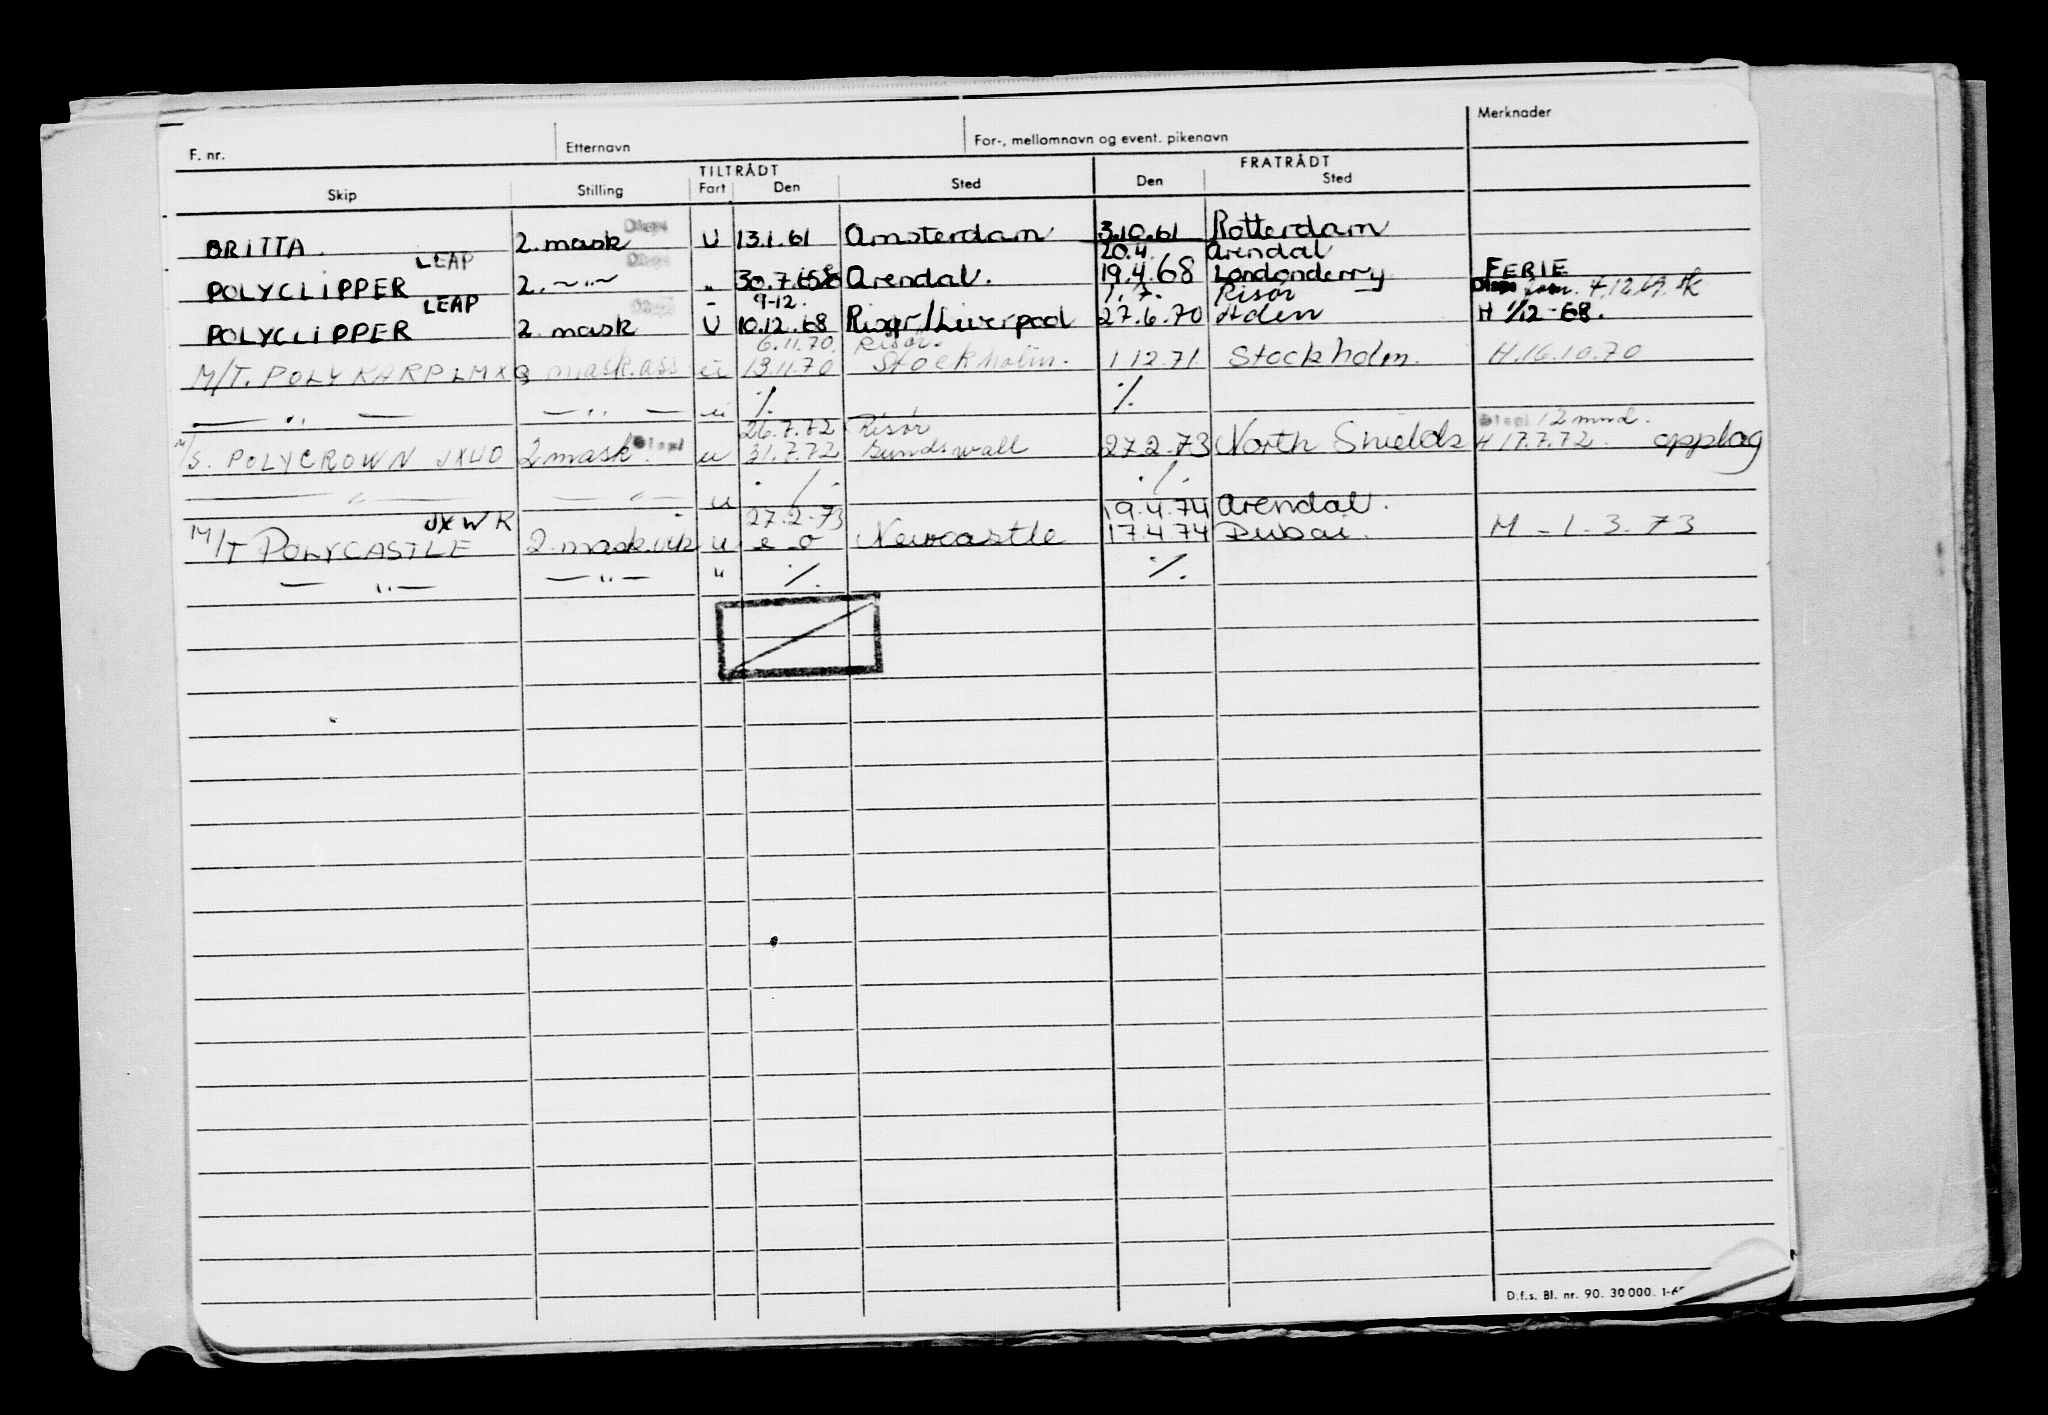 F. nr. Etternavn For-, mellomnavn og event. pikenavn Merknader
TILTRÅDT FRATRÅDT
Skip Stilling Fart Den Sted Den Sted
Disps
BRITTA. 2. mask U 13.1.61 Amsterdam 3.10.61 Rotterdam
LEAP Disps 20.4. Arendal
POLYCLIPPER 2. —"— " Arendal. 19.4.68 Londonderry FERIE
LEAP Disps 9-12. 1.7. Risør Disps 4.12.69
POLYCLIPPER 2. mask U 10.12.68 Risør/Liverpool 27.6.70 Aden H 1/12-68.
6.11.70. Risør.
M/T. POLYKARP LMXQ mask.ass u 13.11.70 Stockholm. 1.12.71 Stockholm. H.16.10.70
— " — — " — u ./. ./.
26.7.72 Risør 12 mnd.
M/S. POLYCROWN JXUO 2 mask. u 31.7.72 Sundswall 27.2.73 North Shields H 17.7.72. opplag
— " — — " — u ./. ./.
JXWR 27.2.73 19.4.74 Arendal.
M/T POLYCASTLE 2. mask.vik u Newcastle 17.4.74 Dubai. M - 1.3.73
— " — — " — " ./. ./.
D.f.s. Bl. nr. 90. 30 000.